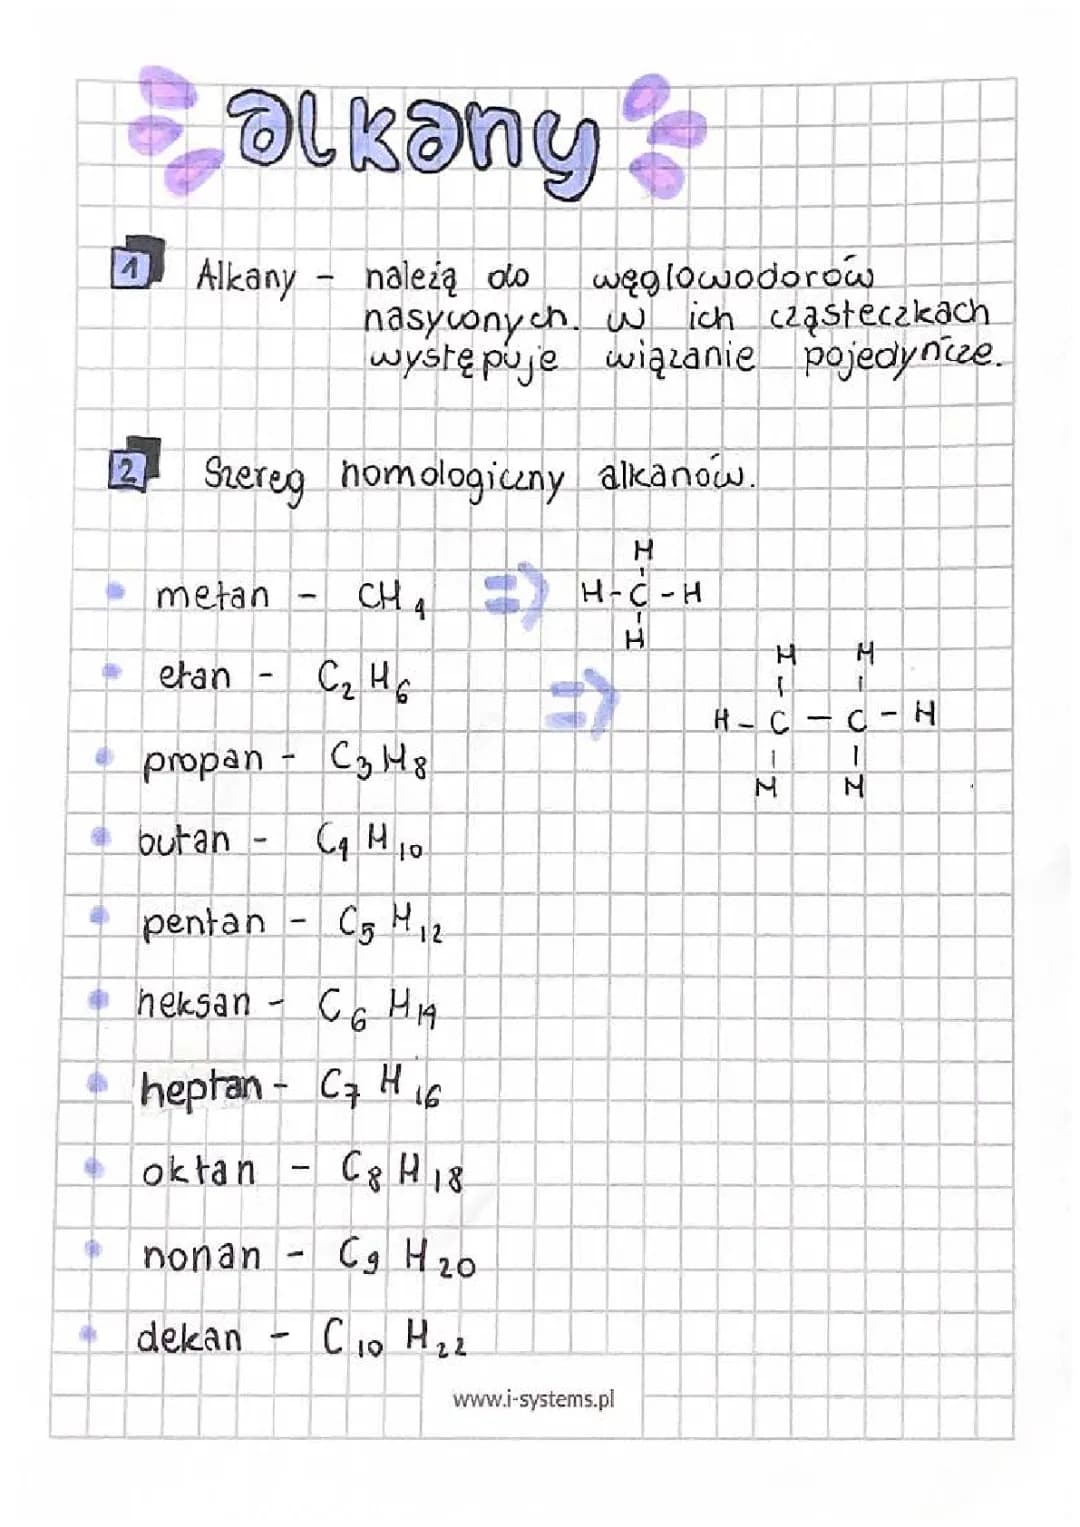 alkany
1 Alkany - należą do węglowodorów
nasyconych. w ich cząsteczkach
występuje wiązanie pojedyńcze.
2 Szereg homologiczny alkanów.
H
metan - CH4 => H-C-H
H
H H
etan - C2H6 =>
H-C-C-H
propan - C3H8
H H
butan - C4H10
pentan - C5H12
heksan - C6H14
heptan - C7H16
oktan - C8H18
nonan - C9H20
dekan - C10H22
www.i-systems.pl